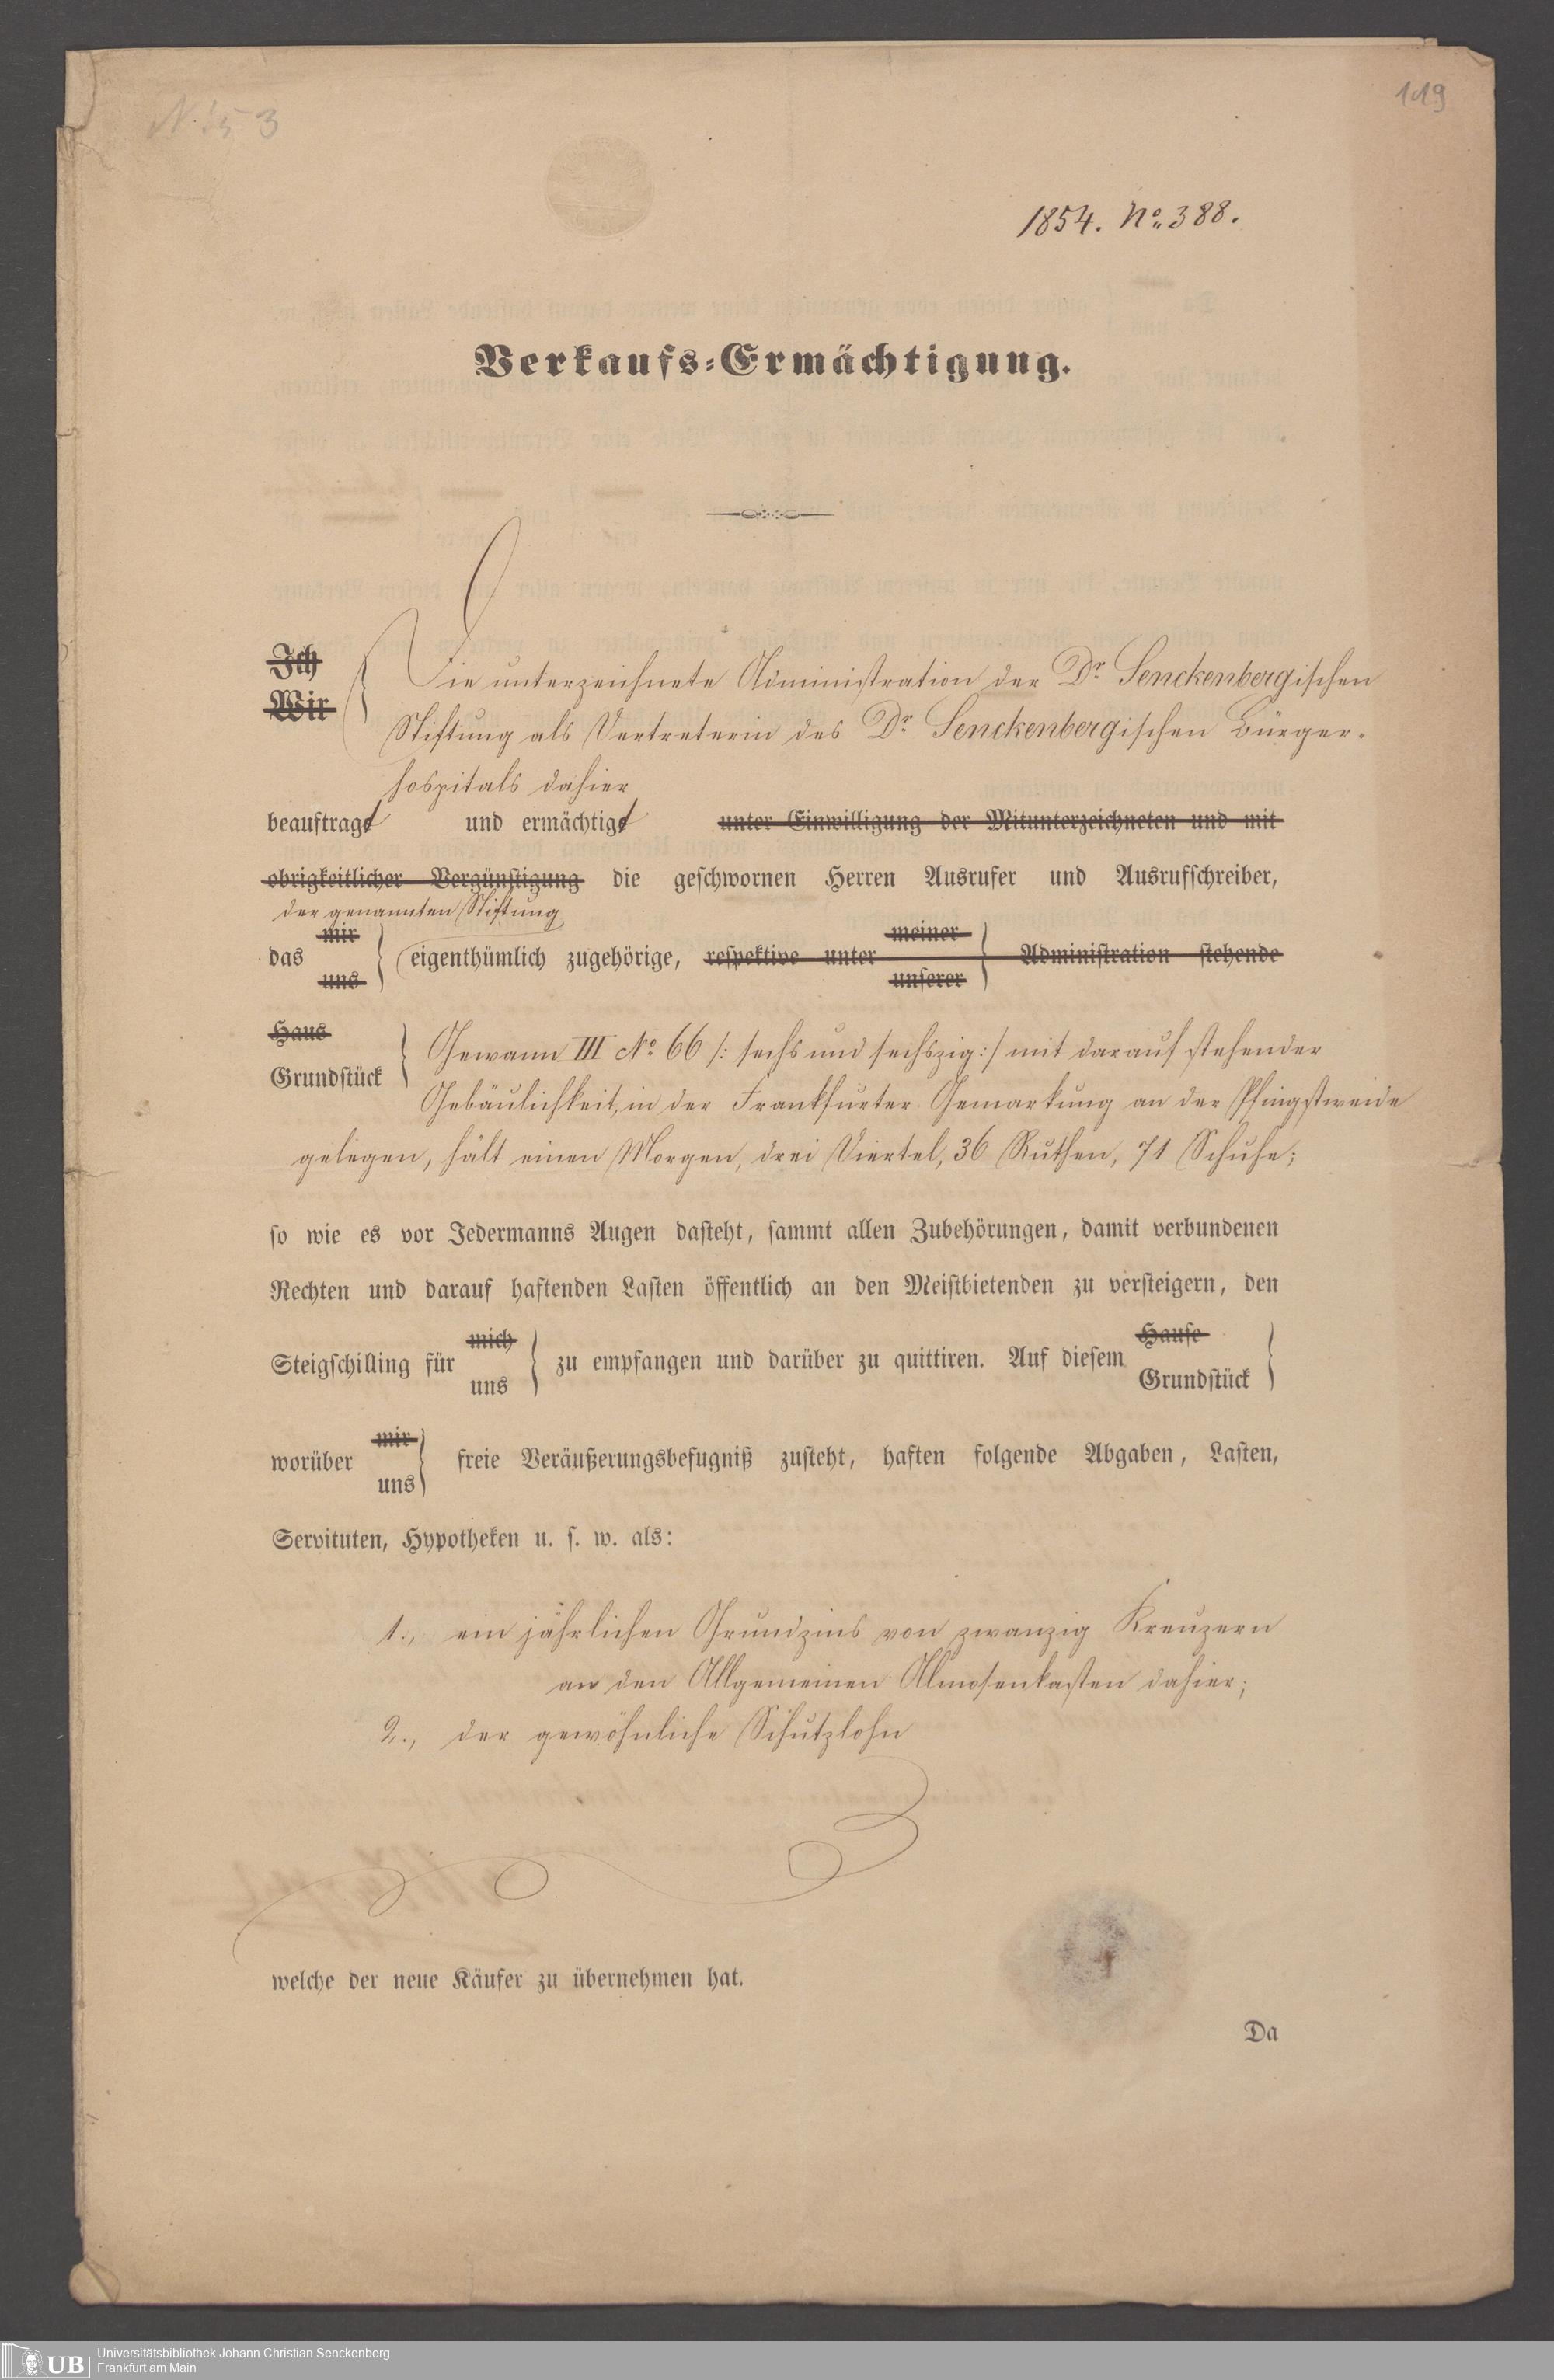 119
1854. No. 388.
Verkaufs-Ermächtigung.
Ich
Wir
Die unterzeichnete Administration der Dr. Senckenbergischen
Stiftung als Vertreterin des Dr. Senckenbergischen Bürger-
hospitals dahier
beauftragt und ermächtigt unter Einwilligung der Mitunterzeichneten und mit
obrigkeitlicher Vergünstigung die geschwornen Herren Ausrufer und Ausrufschreiber,
der genannten Stiftung
das mir uns eigenthümlich zugehörige, respektive unter meiner unserer Administration stehende
Haus
Grundstück
Gewann III No. 66 /: sechs und sechszig :/ mit darauf stehender
Gebäulichkeit, in der Frankfurter Gemarkung an der Pfingstweide
gelegen, hält einen Morgen, drei Viertel, 36 Ruthen, 71 Schuhe;
so wie es vor Jedermanns Augen dasteht, sammt allen Zubehörungen, damit verbundenen
Rechten und darauf haftenden Lasten öffentlich an den Meistbietenden zu versteigern, den
Steigschilling für mich uns zu empfangen und darüber zu quittiren. Auf diesem Hause Grundstück
worüber mir uns freie Veräußerungsbefugniß zusteht, haften folgende Abgaben, Lasten,
Servituten, Hypotheken u. s. w. als:
1., ein jährlichen Grundzins von zwanzig Kreuzern
an den Allgemeinen Almosenkasten dahier;
2., der gewöhnliche Schutzlohn
welche der neue Käufer zu übernehmen hat.
Da
UB
Universitätsbibliothek Johann Christian Senckenberg
Frankfurt am Main